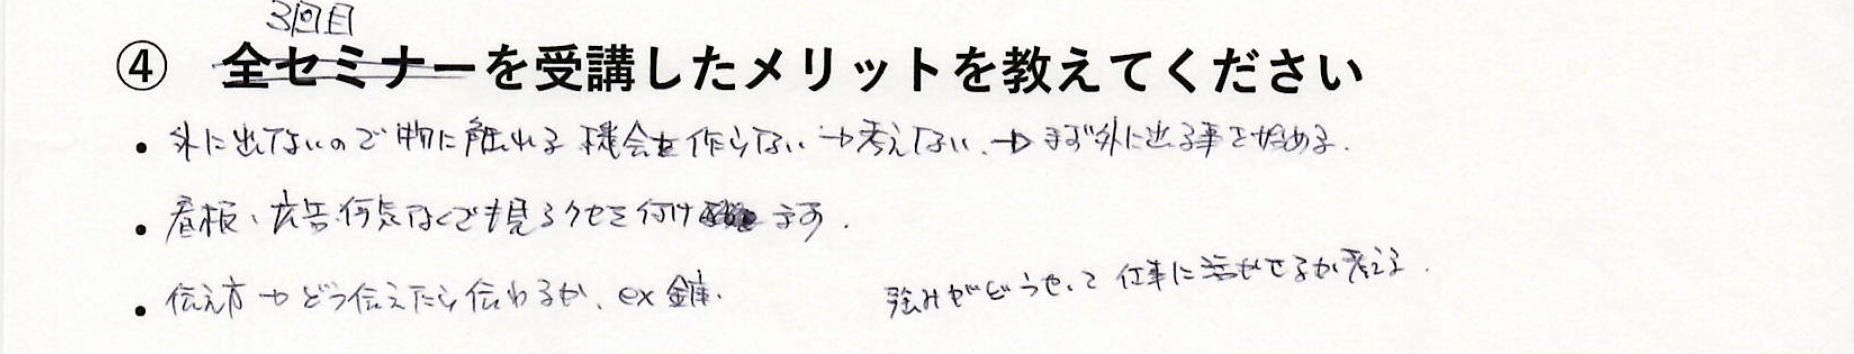 3回目
④ 全セミナーを受講したメリットを教えてください
・外に出ないので物に触れる機会を作らない→考えない、→まず外に出る事を始める.
・看板、広告何気なくでも見るクセを付けます.
・伝え方→どう伝えたら伝わるか、ex 金庫. 強みがどうやって仕事に活かせるか考える.